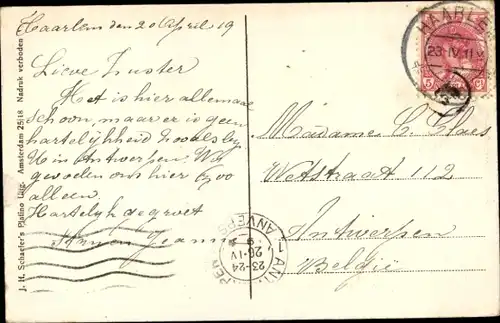 Haarlem den 20 April 19
Lieve Zuster
Het is hier allemaal
schoon, maar er is geen
hartelijkheid zooals by
U in Antwerpen. Wy
gevoelen ons hier zoo
alleen.
Hartelyk gegroet
Jeanne
J. H. Schaefer's Platino Uitg. Amsterdam 25/18 Nadruk verboden
HAARLE
23.IV.11
5 ct
Madame C. Claes
Wetstraat 112
Antwerpen
België
ANVERS
23-24
26.IV
ANT
PEN